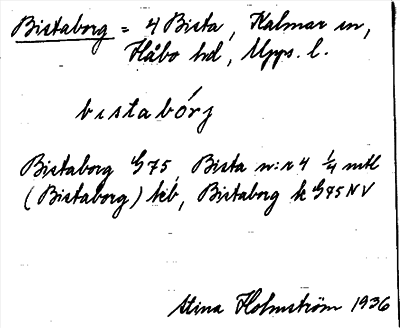 Bistaborg = 4 Bista, Kalmar sn,
Håbo hd, Upps. l.
bistabórj
Bistaborg G75, Bista n:r 4 1/4 mtl
(Bistaborg) teb, Bistaborg k G75 NV
Stina Holmström 1936